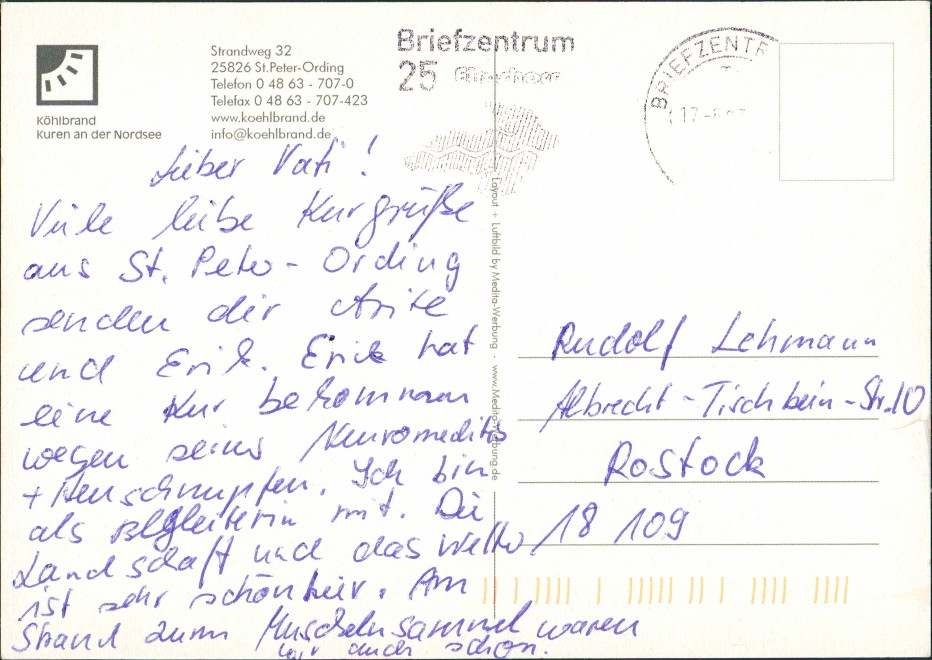 Köhlbrand
Kuren an der Nordsee
Strandweg 32
25826 St.Peter-Ording
Telefon 0 48 63 - 707-0
Telefax 0 48 63 - 707-423
www.koehlbrand.de
info@koehlbrand.de
Briefzentrum
25
BRIEFZENTR
17
Lieber Vati!
Viele liebe Kurgrüße
aus St. Peter-Ording
senden dir
und Erik. Erik hat
eine Kur bekommen
wegen seines Neurodermitis
+ Heuschnupfen. Ich bin
als Begleiterin mit. Die
Landschaft und das Wetter
ist sehr schön hier. Am
Strand zum Muscheln sammeln waren
wir auch schon.
Layout + Luftbild by Medita-Werbung - www.Medita-Werbung.de
Rudolf Lehmann
Albrecht-Tischbein-Str.10
Rostock
18 109